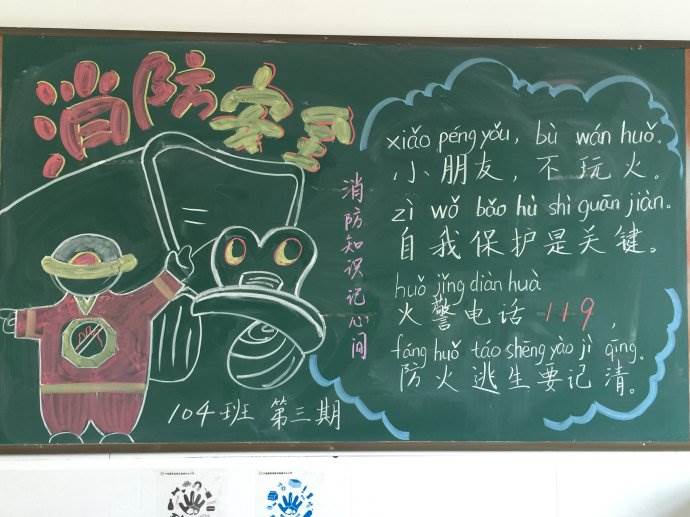 消防安全
xiǎo péng yǒu, bù wán huǒ.
小朋友，不玩火。
zì wǒ bǎo hù shì guān jiàn.
自我保护是关键。
huǒ jǐng diàn huà
火警电话119，
fáng huǒ táo shēng yào jì qīng.
防火逃生要记清。
消防知识记心间
104班 第三期